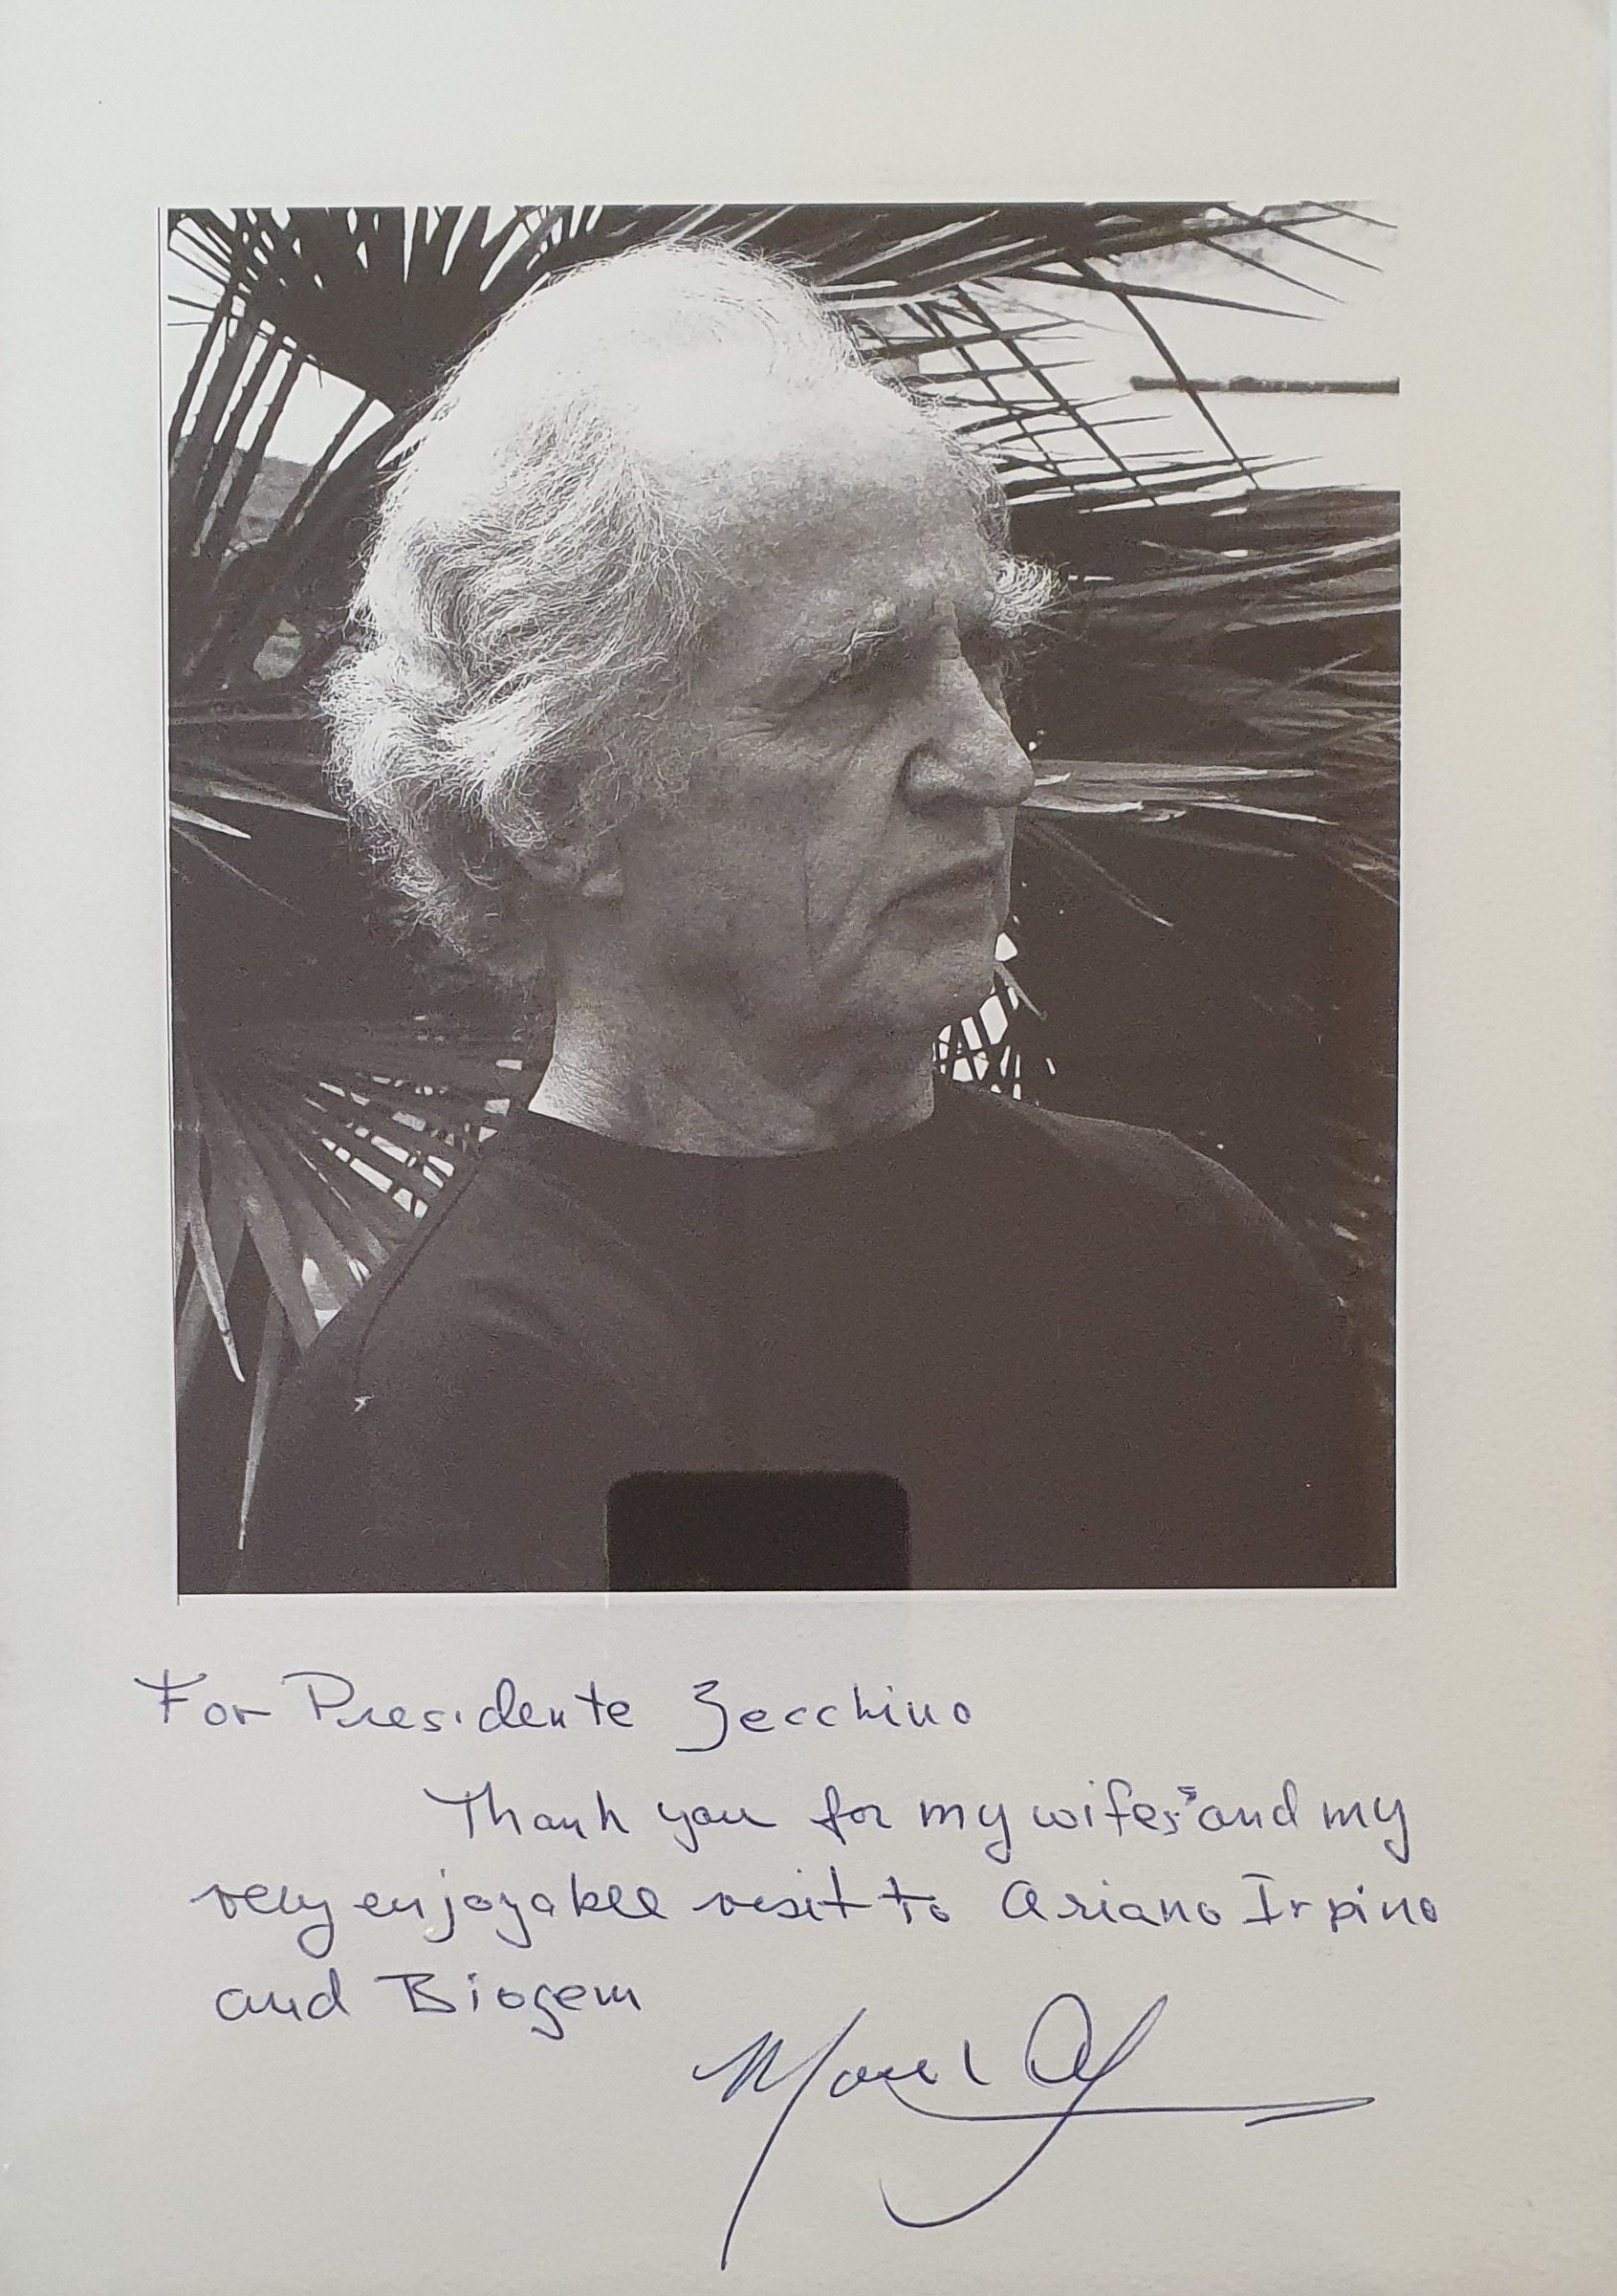 For Presidente Zecchino
Thank you for my wife's and my
very enjoyable visit to Ariano Irpino
and Biogem